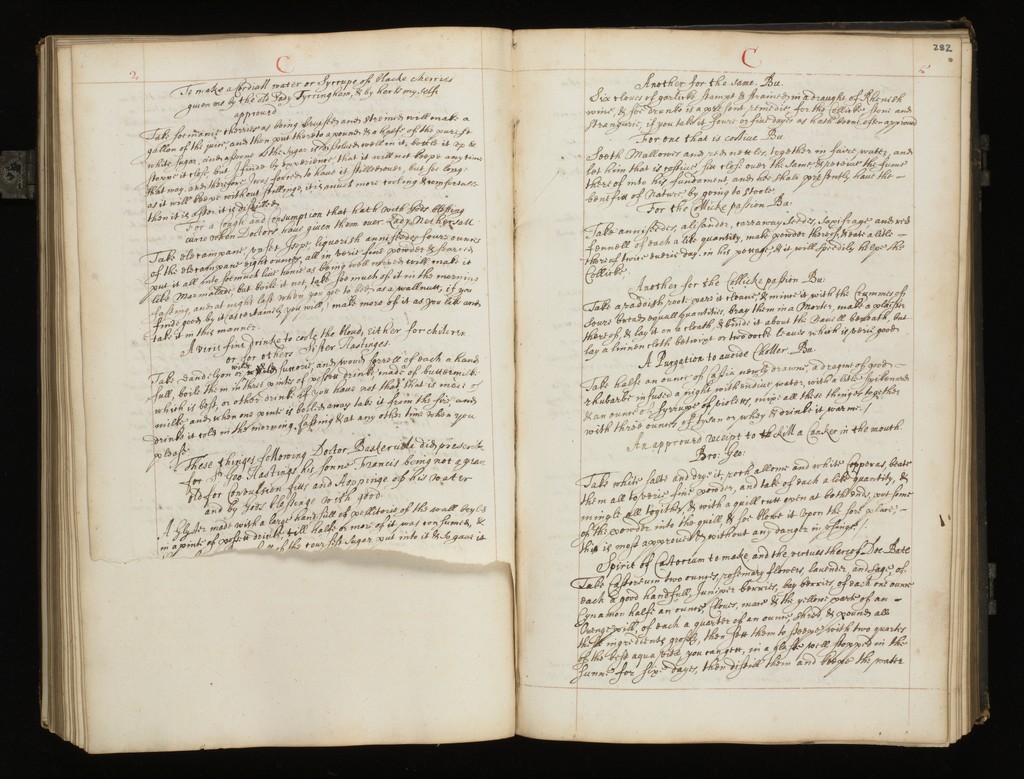 2
C
To make a Cordiall water or Syrrupe of blacke cherries
giuen me by the old Lady Tyrringham, & by her & my self
approued
Take soe manie cherries as being bruysed and streined will make a
gallon of the juice, and then put thereto a pound & a halfe of the purest
white sugar, and assone as the sugar is dissolued well in it, bottle it up &
stopp it close, but I finde by experience that it will not keepe any time
that way, and therefore I was forced to haue it stilled ouer, but soe long
as it will keepe without stillinge, it is much more cooling & comfortable
then it is after it is distilled
For a Cough and Consumption that hath with Gods blessing
cured when Doctors haue giuen them ouer Lady Nethersoll
Take elecampane, unset Isop, liquorish annisseedes four ounces
of the elecampane eight ounces, all in verie fine powder & searced
put it all into soe much liue honie as being well mixed will make it
like Marmalade, but boile it not, take soe much of it in the morning
fasting, and at night last when you goe to bed as a wallnutt, if you
finde good by it, as certainly you will, make more of it as you like and
take it in this manner
A verie fine drinke to coole the bloud, either for children
or for others Sister Hastings
Take Dandelyon or wild Succorie, and wood sorrell of each a hand
full, boile them in three pintes of posset drinke made of buttermilke
which is best, or other drinke if you haue not that, that is most of
milke and when one pinte is boiled away take it from the fire and
drinke it cold in the morning fasting & at any other time when you
please
These thinges following Doctor Baskeruile did prescribe
for Sr Geo: Hastings his sonne Francis being not a yeare
old for Convulsion fitts and stoppinge of his water
and by Gods blessinge with good
A Glyster made with a large handfull of pellitorie of the wall boyled
in a pinte of posset drinke till halfe or more of it was consumed, &
of the coursest sugar put into it & so gaue it
282
C
2
Another for the same. Bu
Six cloues of garlicke stampt & strained in a draught of Rhenish
wine, & soe drunke is a present remedie for the Collicke, stone and
stranguric, if you take it foure or fiue dayes as hath been often approued
For one that is costiue Bu
Seeth Mallowes and red nettles, together in faire water, and
let him that is costiue sitt close ouer the same & receiue the fume
thereof into his fundament and hee shall presently haue the
benifitt of Nature by going to stoole
For the Collicke passion Ba:
Take annisseedes, alisander, carraway seedes, saxifrage and red
fennell of each a like quantity, make powder thereof & eate a litle
thereof twice euerie day, in his pottage, & it will speedily helpe the
Collicke
Another for the Collicke passion Bu:
Take a radish roote pare it cleane & mince it with the crummes of
soure bread equall quantities, bray them in a Morter, make a plaister
thereof, & lay it on a cloath & binde it about the Nauill beneath, but
lay a linnen cloth betwixt or two docke leaues which is verie good
A Purgation to auoide Choller Bu
Take halfe an ounce of Cassia newly drawne, a dragme of good
rhubarbe infused a night with endiue water, with a litle spikenard
& an ounce of Syrrupe of violetts, mixe all these thinges together
with three ounces of tysan or whay & drinke it warme /
An approued receipt to kill a Canker in the mouth
Bro: Geo:
Take white salte and dry it, roch allome and white Copperas, beate
them all to verie fine powder, and take of each a like quantity, &
mingle all together, & with a quill cutt even at both ends, put some
of the powder into the quill, & soe blowe it upon the sore place,
this is most approued & without any danger in thinge /
Spirit of Castorium to make and the virtues thereof Doc: Bate
Take Castoreum two ounces, rosemary flowers, lauender, and sage, of
each a good handfull, Juniper berries, bay berries, of each one ounce
Cynamon halfe an ounce, Cloues, mace & the yellow parte of an
Orange pill, of each a quarter of an ounce, shred & pound all
these ingredients grosse, then sett them to steepe with two quartes
of the best aqua vitæ, you can gett, in a glasse well stopped in the
sunne for sixe dayes, then distill them and keepe the water